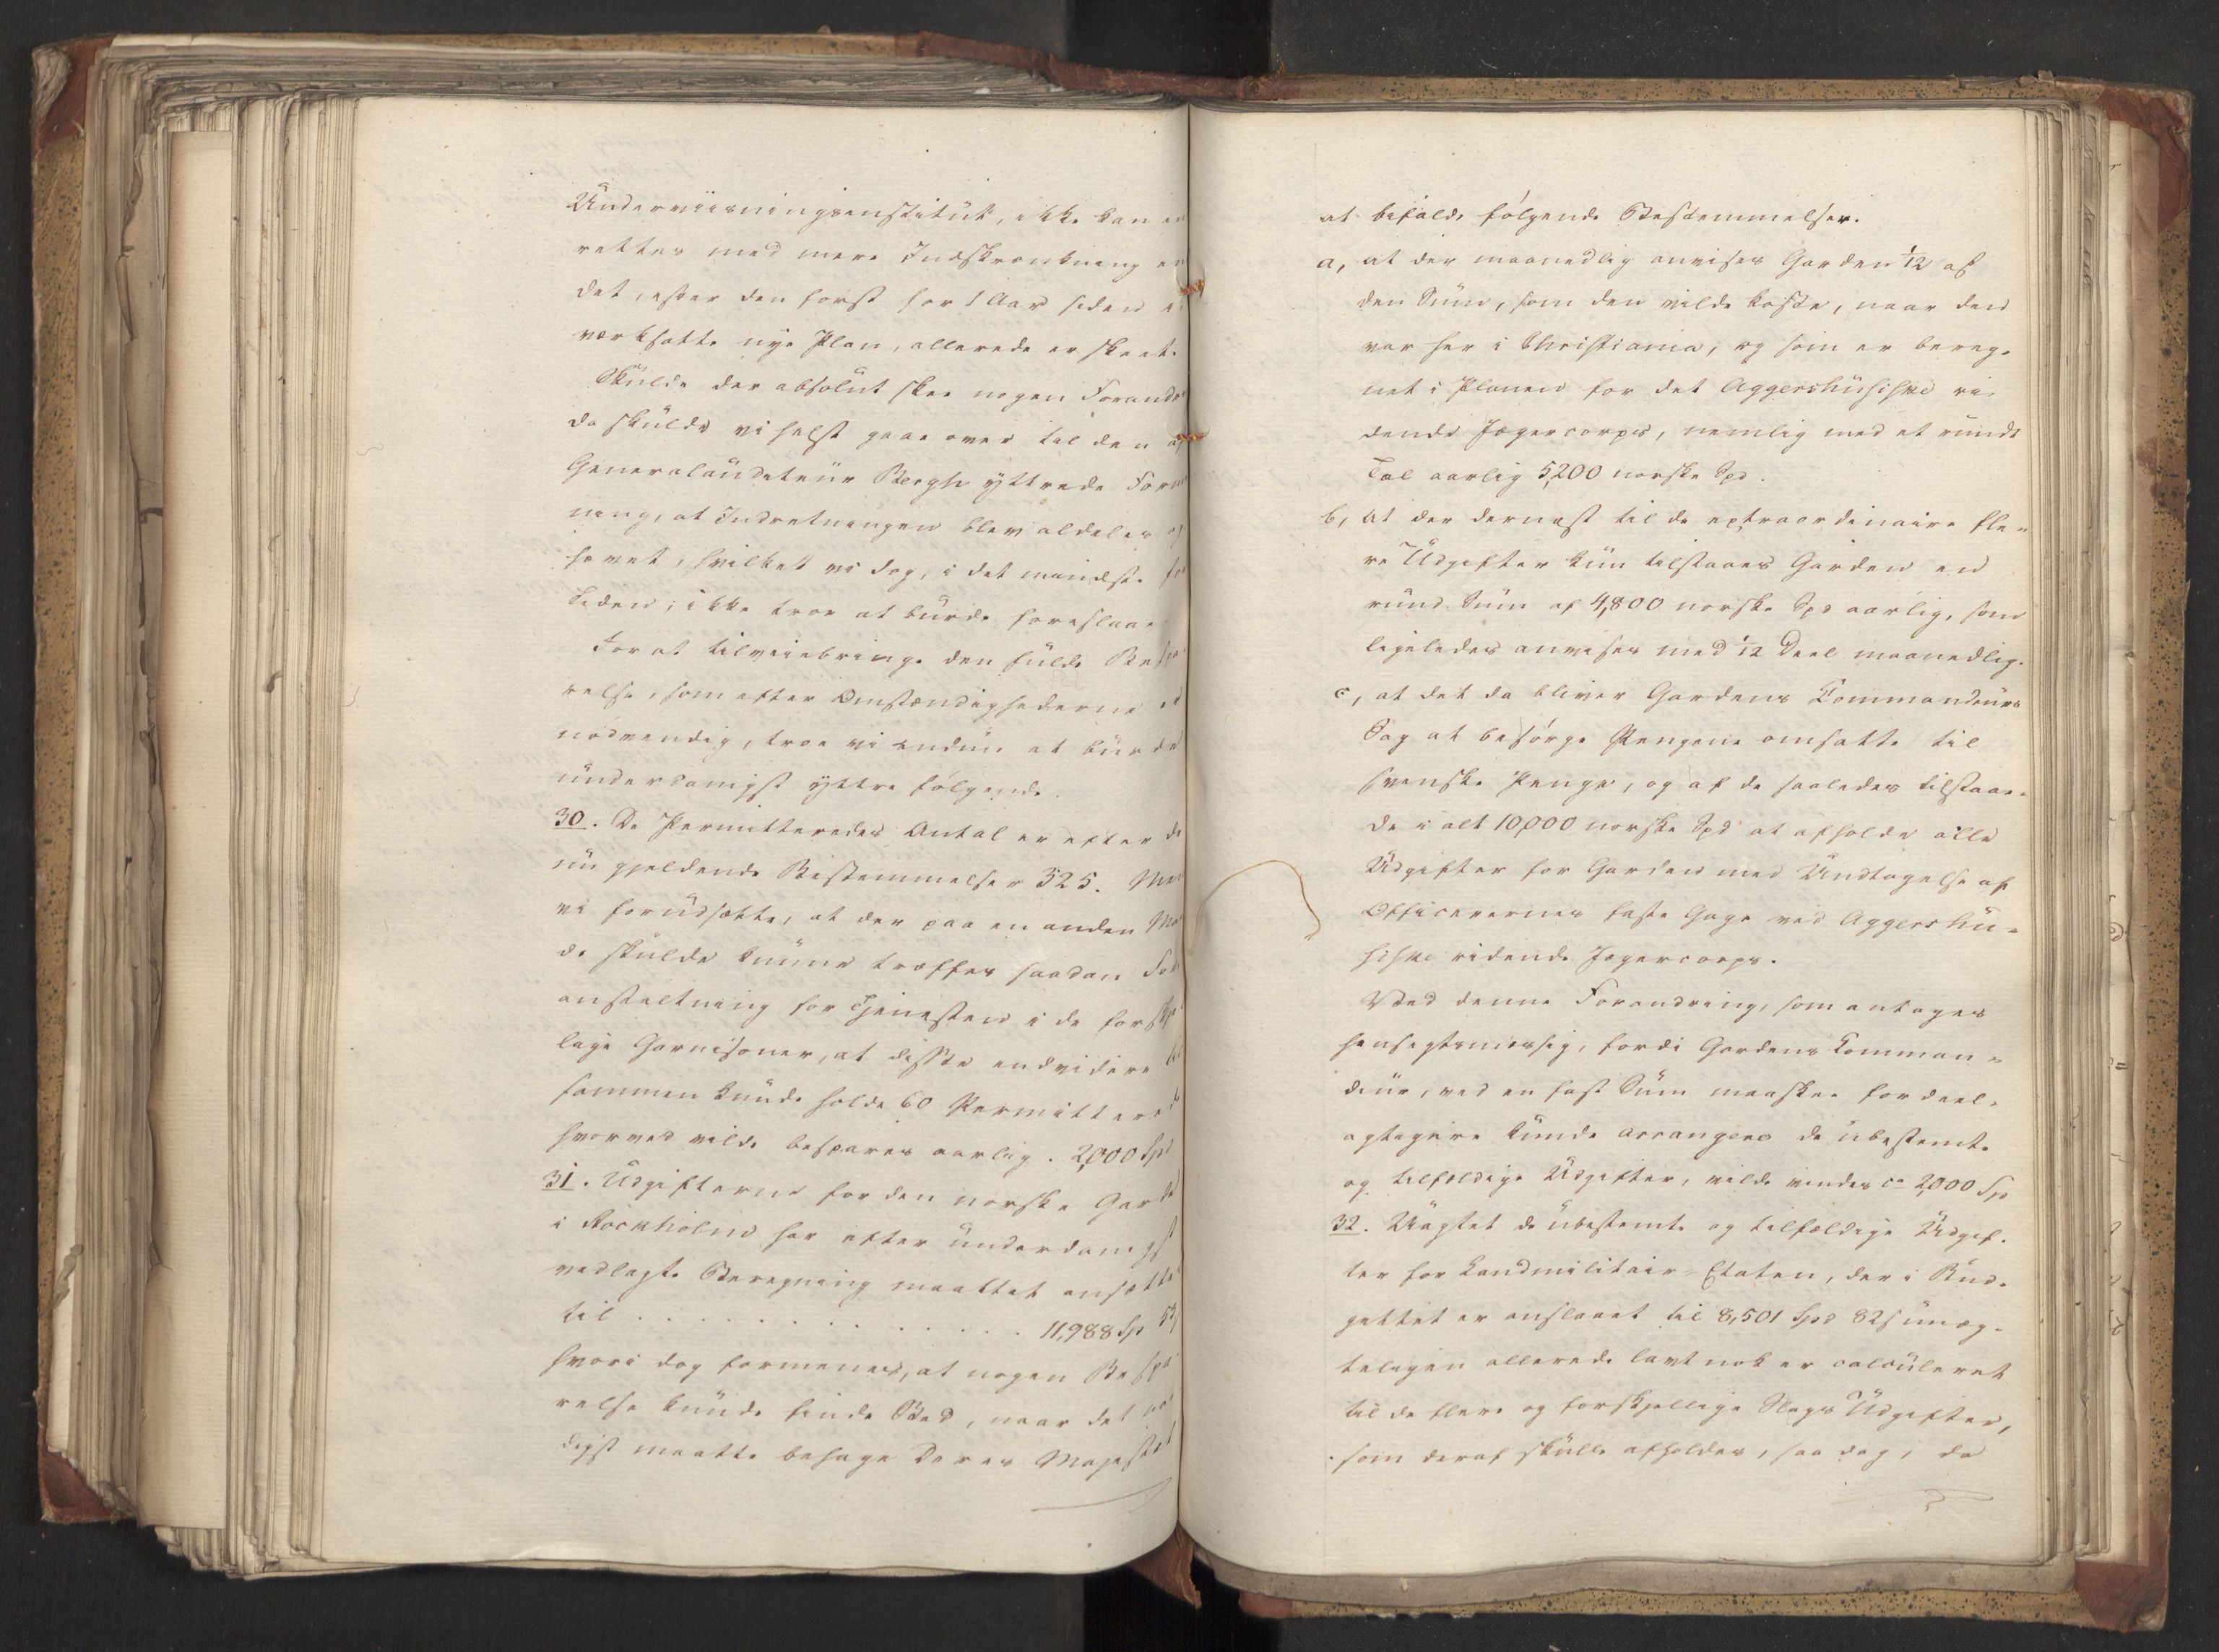 Underviisningsinstitut, ikke kan
rettes med mere Indskrænkning en
det, efter den først for 1 Aar siden
værksatte nye Plan, allerede er skeet.
Skulde der absolut skee nogen Forand
da skulde vi helst gaae over til den af
Generalauditeur Bergh yttrede For
ning, at Indretningen blev aldeles op
hævet, hvilket vi dog, i det mindste for
Tiden, ikke troe at burde foreslaae
For at tilveiebringe den fulde Bespa
relse, som efter Omstændighederne er
nødvendig, troe vi endnu at burde
underdanigst yttre følgende.
30. De Permitteredes Antal er efter de
nu gjeldende Bestemmelser 325. Men
vi forudsætte, at der paa en anden Maa
de skulde kunne træffes saadan For
anstaltning for Tjenesten i de forskjel
lige Garnisoner, at disse endvidere til
sammen kunde holde 60 Permitterede
hvorved vilde bespares aarlig . 2,000 Spd
31. Udgifterne for den norske Garde
i Stockholm har efter underdanigst
vedlagte Beregning maattet ansættes
til . . . . . . . . . . . . . . 11,988 Sp 53
hvori dog formenes, at nogen Bespa
relse kunde finde Sted, naar det naa
digst maatte behage Deres Majestæt
at bifalde følgende Bestemmelser.
a, at der maanedlig anvises Garden 1/12 af
den Sum, som den vilde koste, naar den
var her i Christiania, og som er bereg-
net i Planen for det Aggershusiske ri-
dende Jægercorps, nemlig med et rundt
Tal aarlig 5,200 norske Spd.
b, at der dernæst til de extraordinaire fle-
re Udgifter kun tilstaaes Garden en
rund Sum af 4,800 norske Spd aarlig, som
ligeledes anvises med 1/12 Deel maanedlig.
c, at det da bliver Gardens Commandeurs
Sag at besørge Pengene omsatte til
svenske Penge, og af de saaledes tilstaae-
de i alt 10,000 norske Spd at afholde alle
Udgifter for Garden med Undtagelse af
Officerernes faste Gage ved Aggershu-
siske ridende Jægercorps.
Ved denne Forandring, som antages
hensigtsmæssig, fordi Gardens Comman-
deur, ved en fast Sum maaskee fordeel-
agtigere kunde arrangere de ubestemte
og tilfældige Udgifter, vilde vindes ca 2,000 Sp
32. Uagtet de ubestemte og tilfældige Udgif-
ter for Landmilitair-Etaten, der i Bud-
gettet er anslaaet til 8,501 Spd 82 s unæg-
teligen allerede lavt nok er calculeret
til de flere og forskjellige Slags Udgifter,
som deraf skulle afholdes, saa dog, da